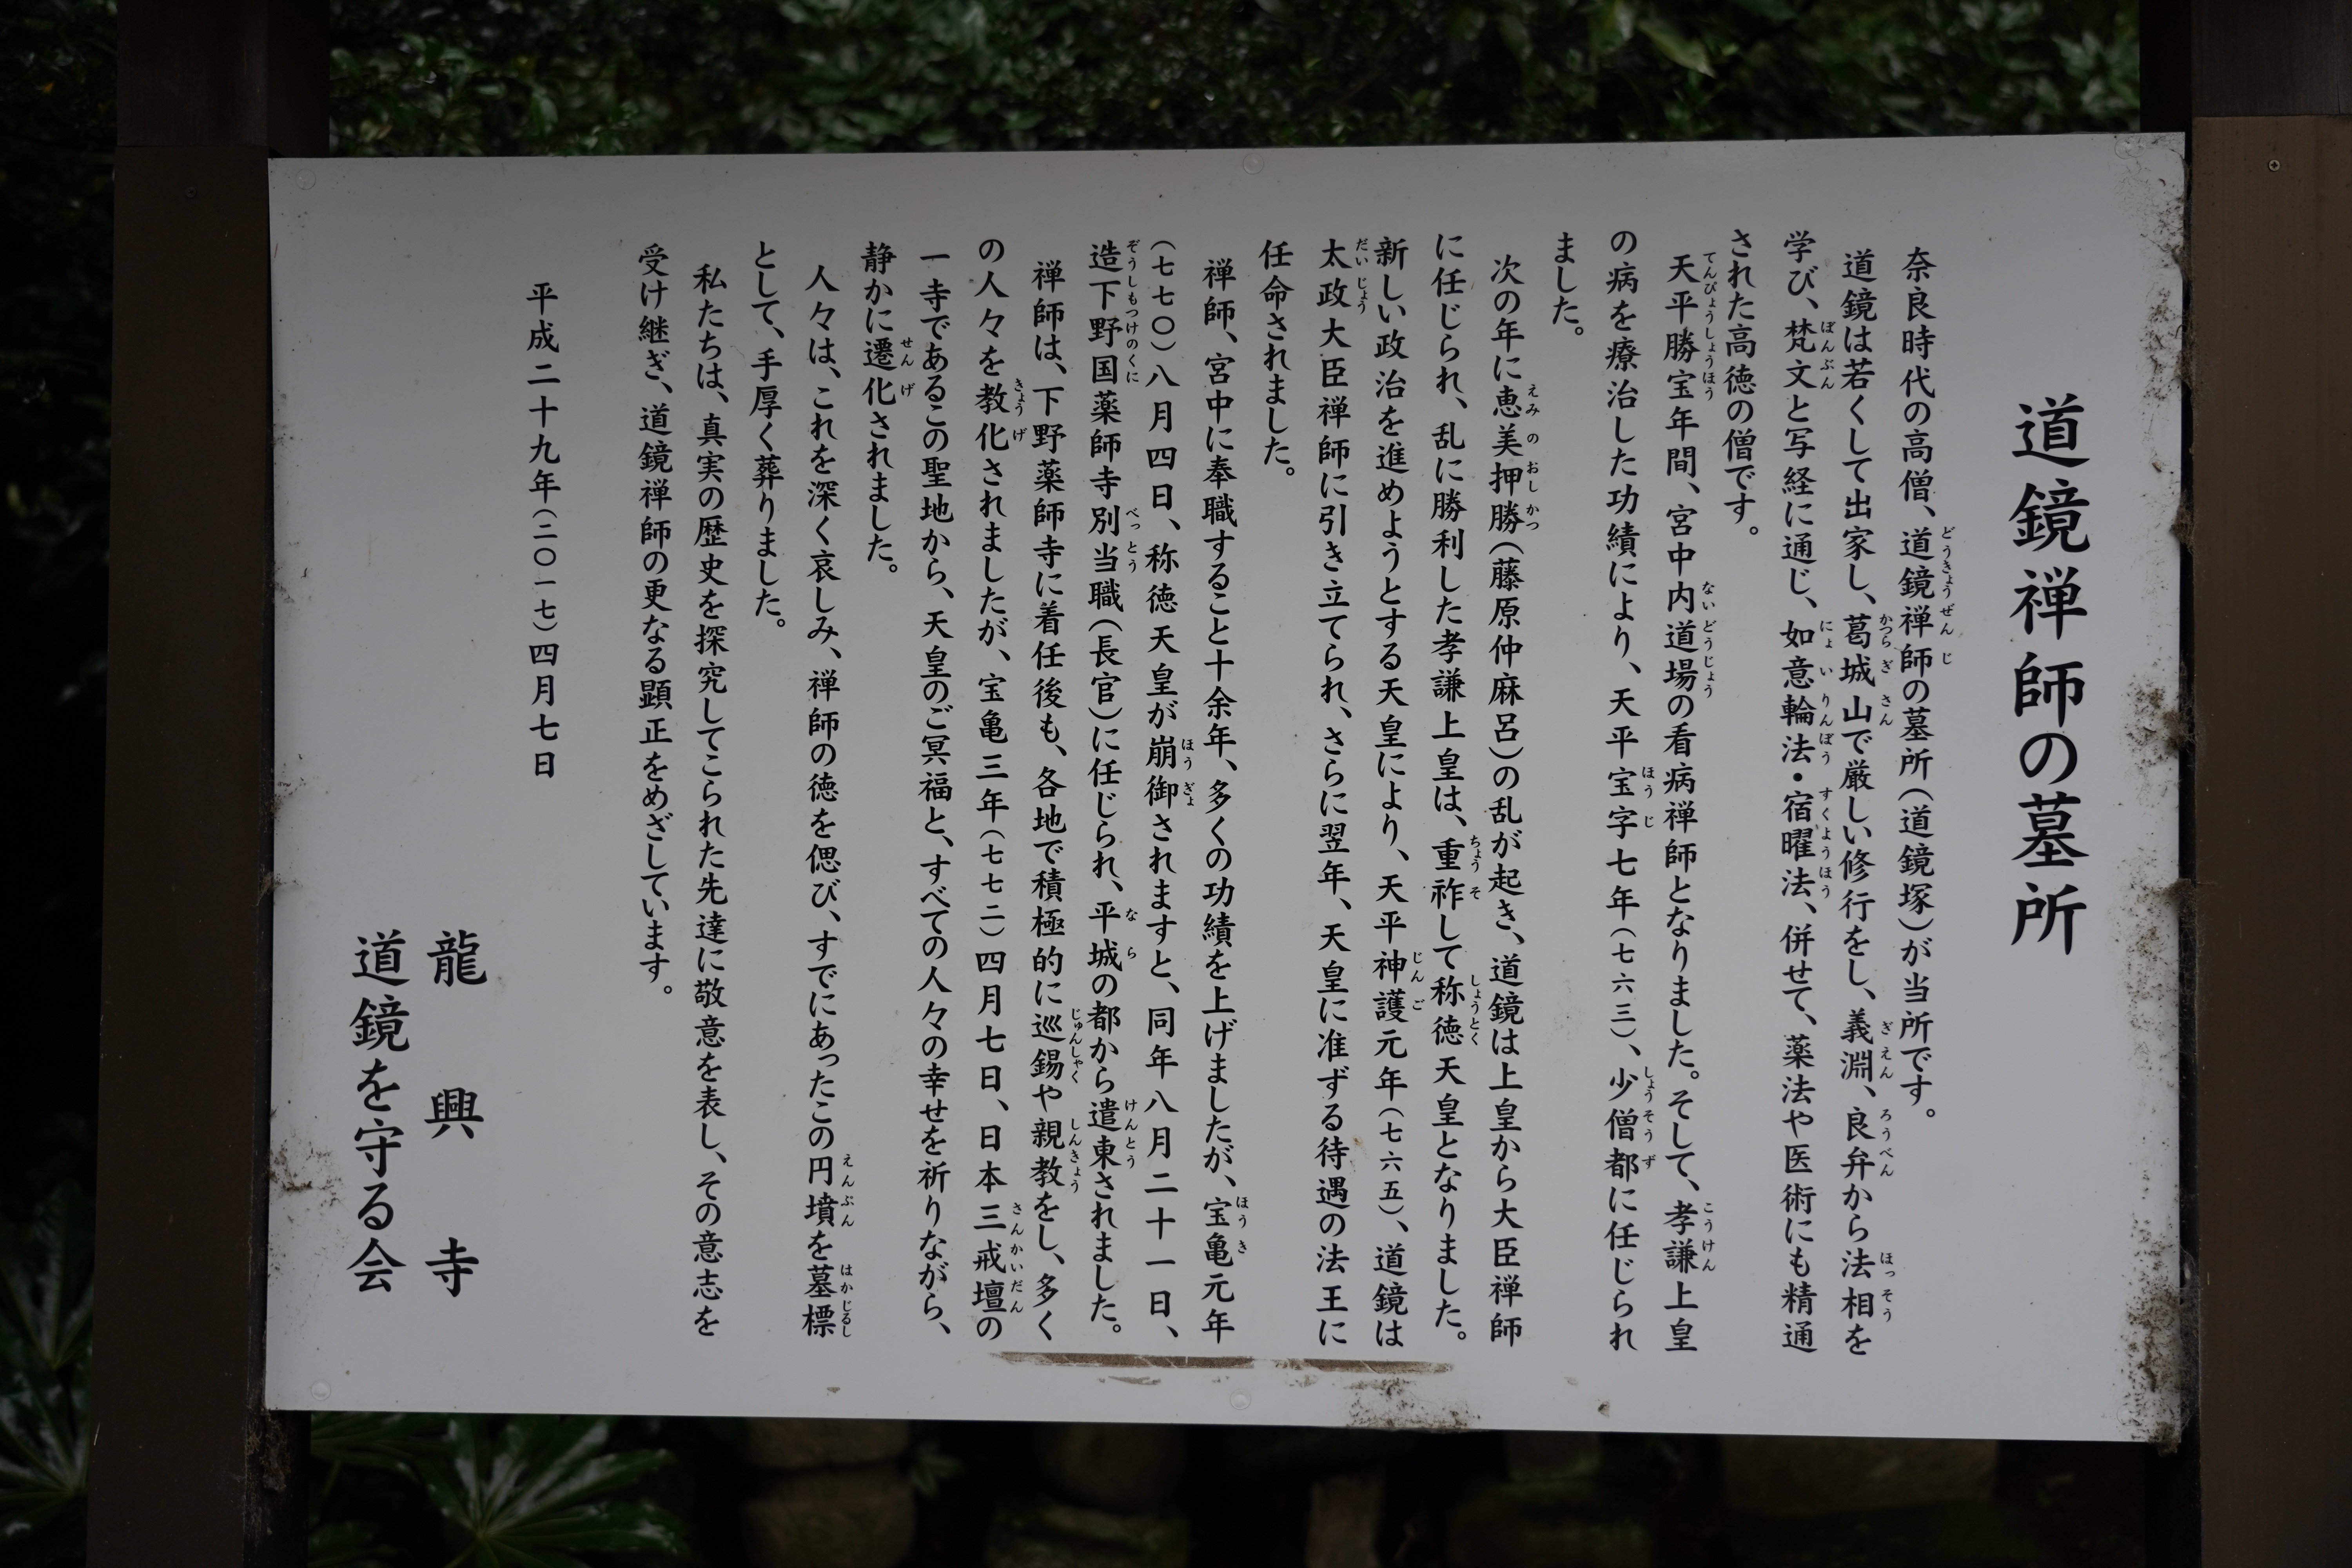 道鏡禅師の墓所
奈良時代の高僧、道鏡禅師の墓所(道鏡塚)が当所です。
道鏡は若くして出家し、葛城山で厳しい修行をし、義淵、良弁から法相を
学び、梵文と写経に通じ、如意輪法・宿曜法、併せて、薬法や医術にも精通
された高徳の僧です。
天平勝宝年間、宮中内道場の看病禅師となりました。そして、孝謙上皇
の病を療治した功績により、天平宝字七年(七六三)、少僧都に任じられ
ました。
次の年に恵美押勝(藤原仲麻呂)の乱が起き、道鏡は上皇から大臣禅師
に任じられ、乱に勝利した孝謙上皇は、重祚して称徳天皇となりました。
新しい政治を進めようとする天皇により、天平神護元年(七六五)、道鏡は
太政大臣禅師に引き立てられ、さらに翌年、天皇に准ずる待遇の法王に
任命されました。
禅師、宮中に奉職すること十余年、多くの功績を上げましたが、宝亀元年
(七七〇)八月四日、称徳天皇が崩御されますと、同年八月二十一日、
造下野国薬師寺別当職(長官)に任じられ、平城の都から遣東されました。
禅師は、下野薬師寺に着任後も、各地で積極的に巡錫や親教をし、多く
の人々を教化されましたが、宝亀三年(七七二)四月七日、日本三戒壇の
一寺であるこの聖地から、天皇のご冥福と、すべての人々の幸せを祈りながら、
静かに遷化されました。
人々は、これを深く哀しみ、禅師の徳を偲び、すでにあったこの円墳を墓標
として、手厚く葬りました。
私たちは、真実の歴史を探究してこられた先達に敬意を表し、その意志を
受け継ぎ、道鏡禅師の更なる顕正をめざしています。
平成二十九年(二〇一七)四月七日
龍興寺
道鏡を守る会